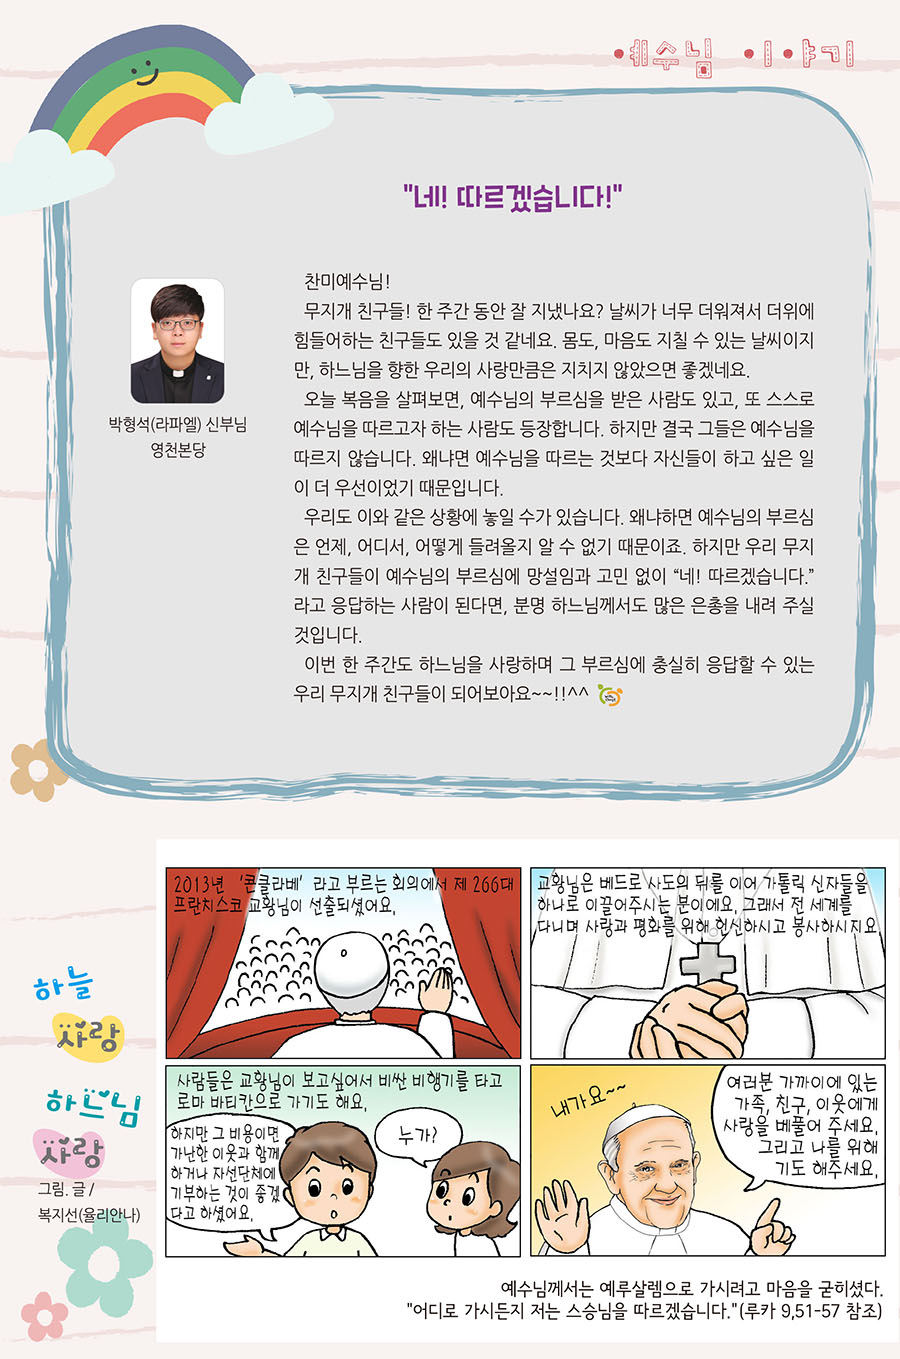 예수님 이야기
"네! 따르겠습니다!"
박형석(라파엘) 신부님
영천본당
찬미예수님!
무지개 친구들! 한 주간 동안 잘 지냈나요? 날씨가 너무 더워져서 더위에
힘들어하는 친구들도 있을 것 같네요. 몸도, 마음도 지칠 수 있는 날씨이지
만, 하느님을 향한 우리의 사랑만큼은 지치지 않았으면 좋겠네요.
오늘 복음을 살펴보면, 예수님의 부르심을 받은 사람도 있고, 또 스스로
예수님을 따르고자 하는 사람도 등장합니다. 하지만 결국 그들은 예수님을
따르지 않습니다. 왜냐면 예수님을 따르는 것보다 자신들이 하고 싶은 일
이 더 우선이었기 때문입니다.
우리도 이와 같은 상황에 놓일 수가 있습니다. 왜냐하면 예수님의 부르심
은 언제, 어디서, 어떻게 들려올지 알 수 없기 때문이죠. 하지만 우리 무지
개 친구들이 예수님의 부르심에 망설임과 고민 없이 “네! 따르겠습니다.”
라고 응답하는 사람이 된다면, 분명 하느님께서도 많은 은총을 내려 주실
것입니다.
이번 한 주간도 하느님을 사랑하며 그 부르심에 충실히 응답할 수 있는
우리 무지개 친구들이 되어보아요~~!!^^
하늘
사랑
하느님
사랑
그림. 글 /
복지선(율리안나)
2013년 '콘클라베' 라고 부르는 회의에서 제 266대
프란치스코 교황님이 선출되셨어요.
교황님은 베드로 사도의 뒤를 이어 가톨릭 신자들을
하나로 이끌어주시는 분이에요. 그래서 전 세계를
다니며 사랑과 평화를 위해 헌신하시고 봉사하시지요
사람들은 교황님이 보고싶어서 비싼 비행기를 타고
로마 바티칸으로 가기도 해요.
하지만 그 비용이면
가난한 이웃과 함께
하거나 자선단체에
기부하는 것이 좋겠
다고 하셨어요.
누가?
내가요~~
여러분 가까이에 있는
가족, 친구, 이웃에게
사랑을 베풀어 주세요.
그리고 나를 위해
기도 해주세요.
예수님께서는 예루살렘으로 가시려고 마음을 굳히셨다.
"어디로 가시든지 저는 스승님을 따르겠습니다."(루카 9,51-57 참조)